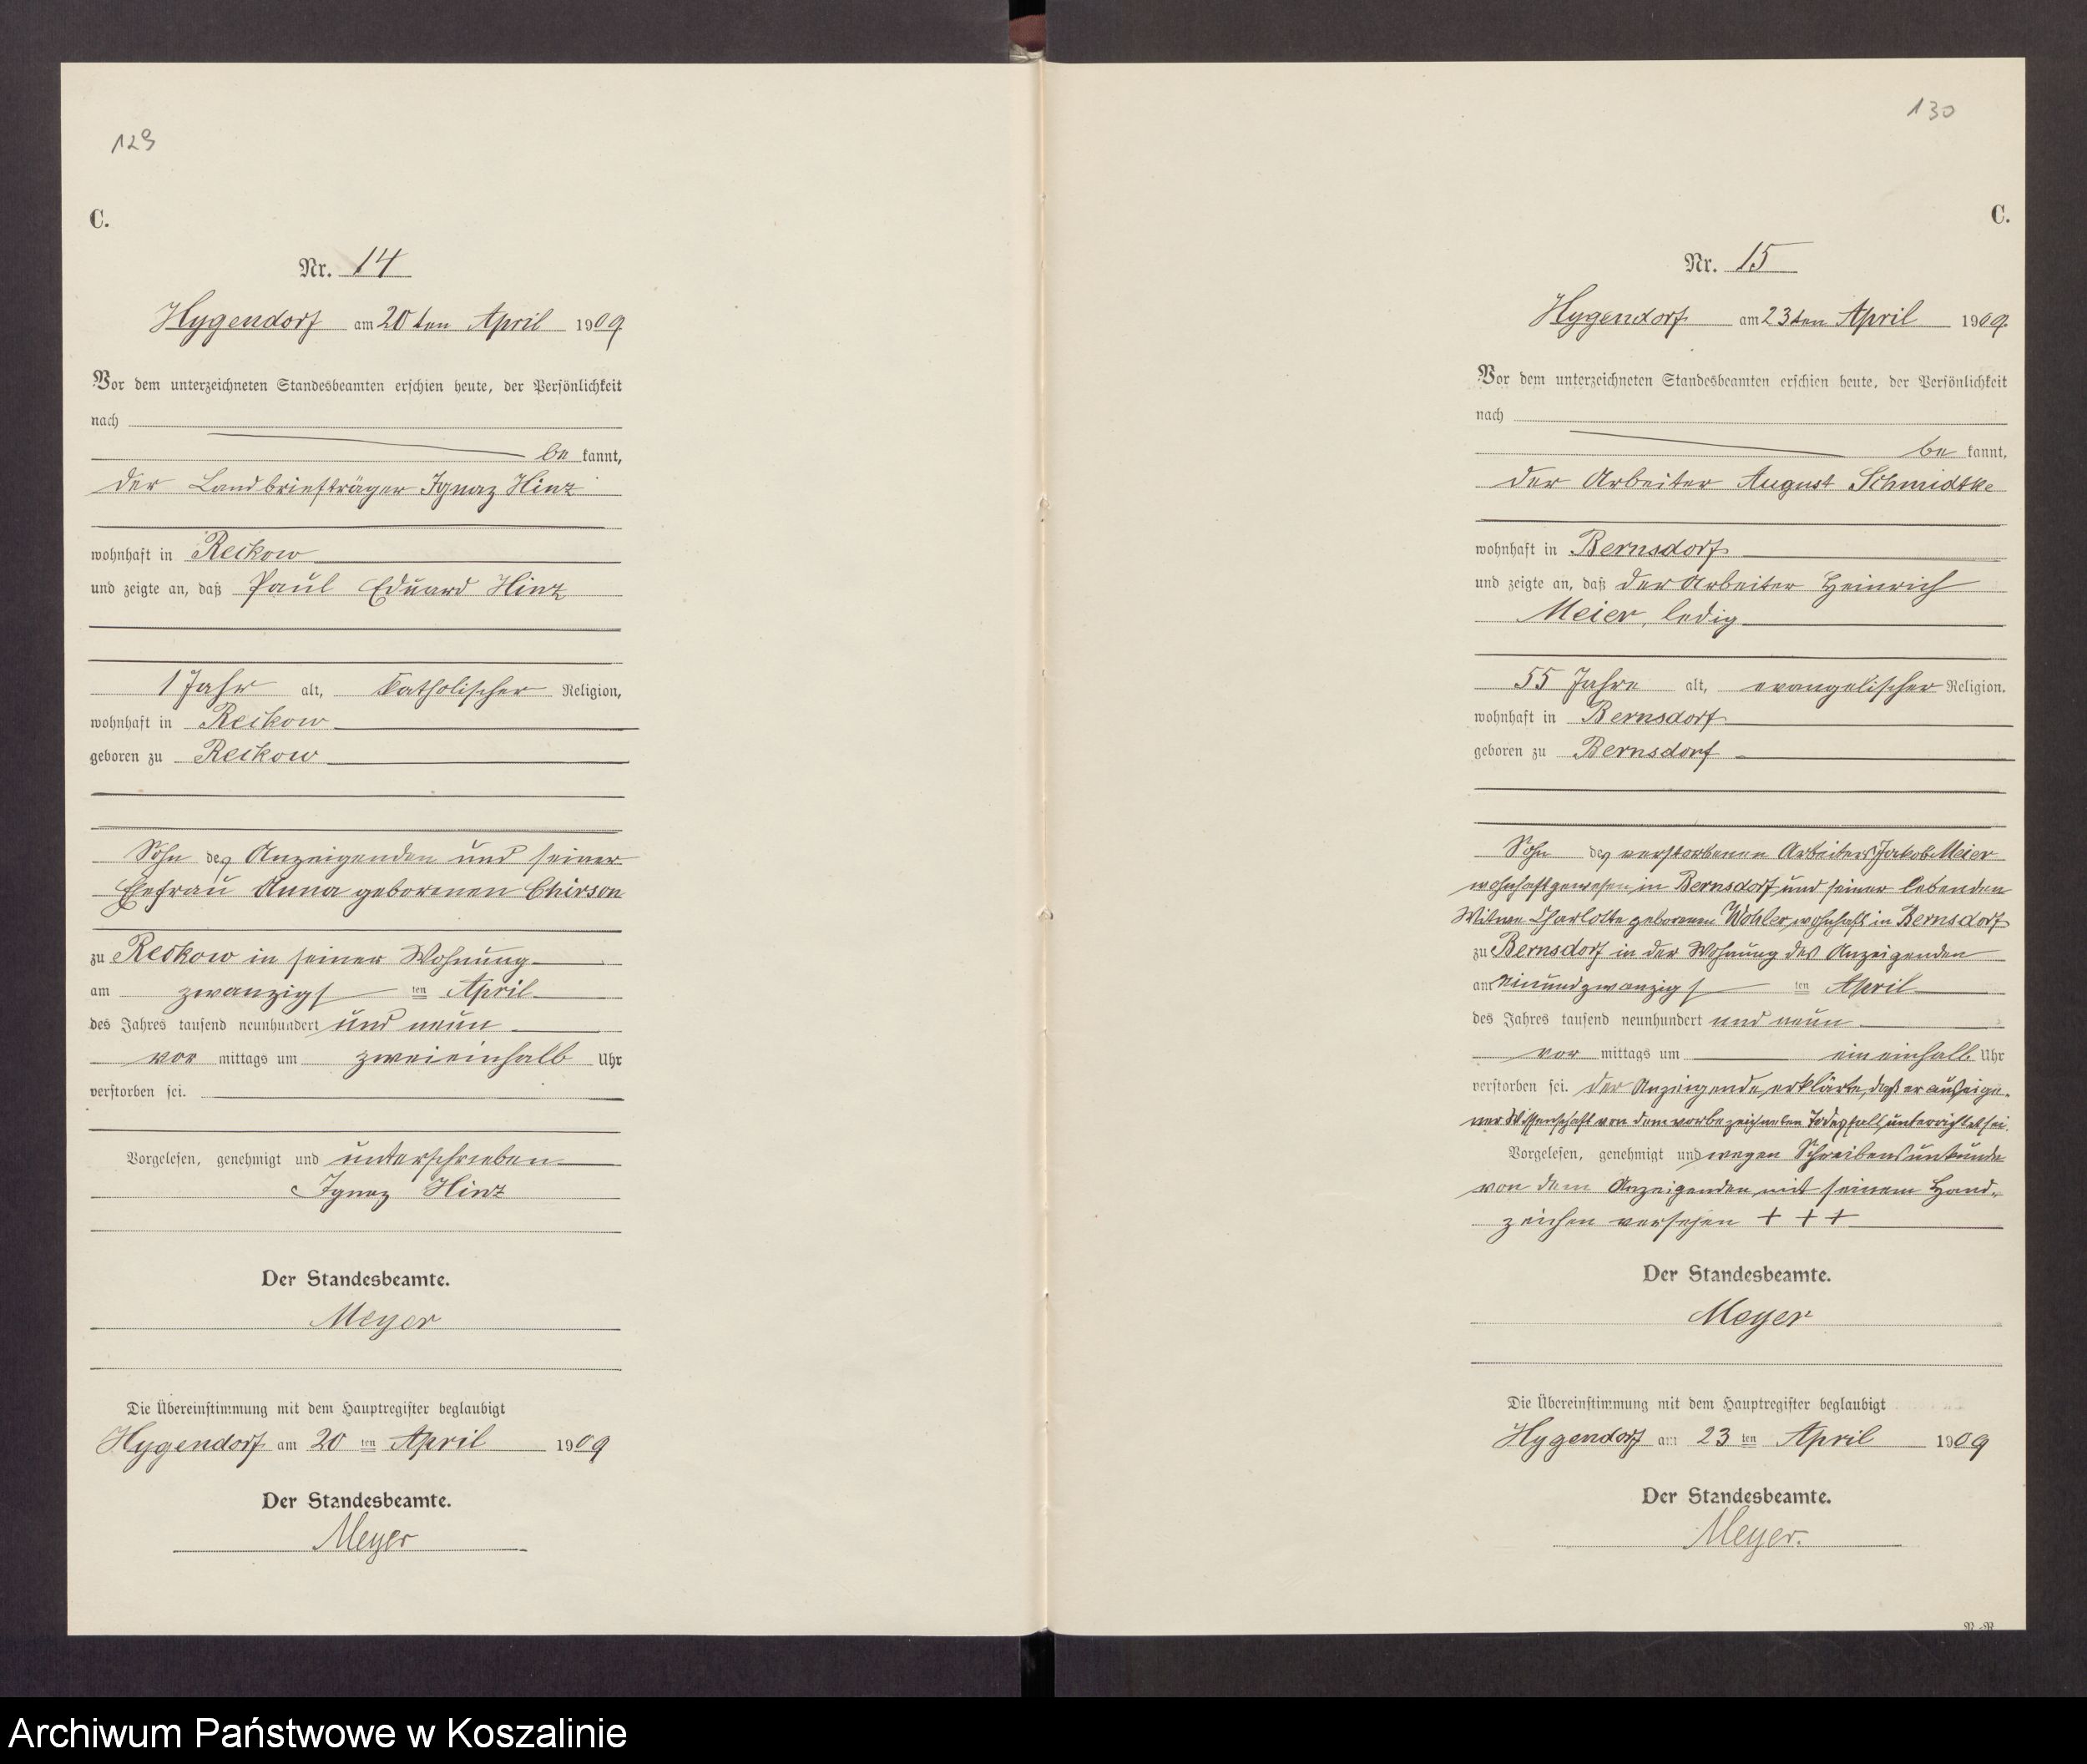 129
C.
Nr. 14
Hygendorf am 20ten April 1909
Vor dem unterzeichneten Standesbeamten erschien heute, der Persönlichkeit
nach
be kannt,
der Landbriefträger Ignaz Hinz
wohnhaft in Reckow
und zeigte an, daß Paul Eduard Hinz
1 Jahr alt, katholischer Religion,
wohnhaft in Reckow
geboren zu Reckow
Sohn des Anzeigenden und seiner
Ehefrau Anna geborenen Chirson
zu Reckow in seiner Wohnung
am zwanzigsten April
des Jahres tausend neunhundert und neun
vor mittags um zweieinhalb Uhr
verstorben sei.
Vorgelesen, genehmigt und unterschrieben
Ignaz Hinz
Der Standesbeamte.
Meyer
Die Übereinstimmung mit dem Hauptregister beglaubigt
Hygendorf am 20 ten April 1909
Der Standesbeamte.
Meyer
130
C.
Nr. 15
Hygendorf am 23ten April 1909.
Vor dem unterzeichneten Standesbeamten erschien heute, der Persönlichkeit
nach
be kannt,
der Arbeiter August Schmidtke
wohnhaft in Bernsdorf
und zeigte an, daß der Arbeiter Heinrich
Meier, ledig
55 Jahre alt, evangelischer Religion.
wohnhaft in Bernsdorf
geboren zu Bernsdorf
Sohn des verstorbenen Arbeiters Jakob Meier
wohnhaft gewesen in Bernsdorf und seiner lebenden
Witwe Charlotte geborenen Wohler, wohnhaft in Bernsdorf
zu Bernsdorf in der Wohnung des Anzeigenden
am einundzwanzigsten April
des Jahres tausend neunhundert und neun
vor mittags um eineinhalb Uhr
verstorben sei. Der Anzeigende erklärte, daß er aus eige-
ner Wissenschaft von dem vorbezeichneten Todesfall unterrichtet sei.
Vorgelesen, genehmigt und wegen Schreibensunkunde
von dem Anzeigenden mit seinem Hand-
zeichen versehen + + +
Der Standesbeamte.
Meyer
Die Übereinstimmung mit dem Hauptregister beglaubigt
Hygendorf am 23 ten April 1909
Der Standesbeamte.
Meyer.
Archiwum Państwowe w Koszalinie